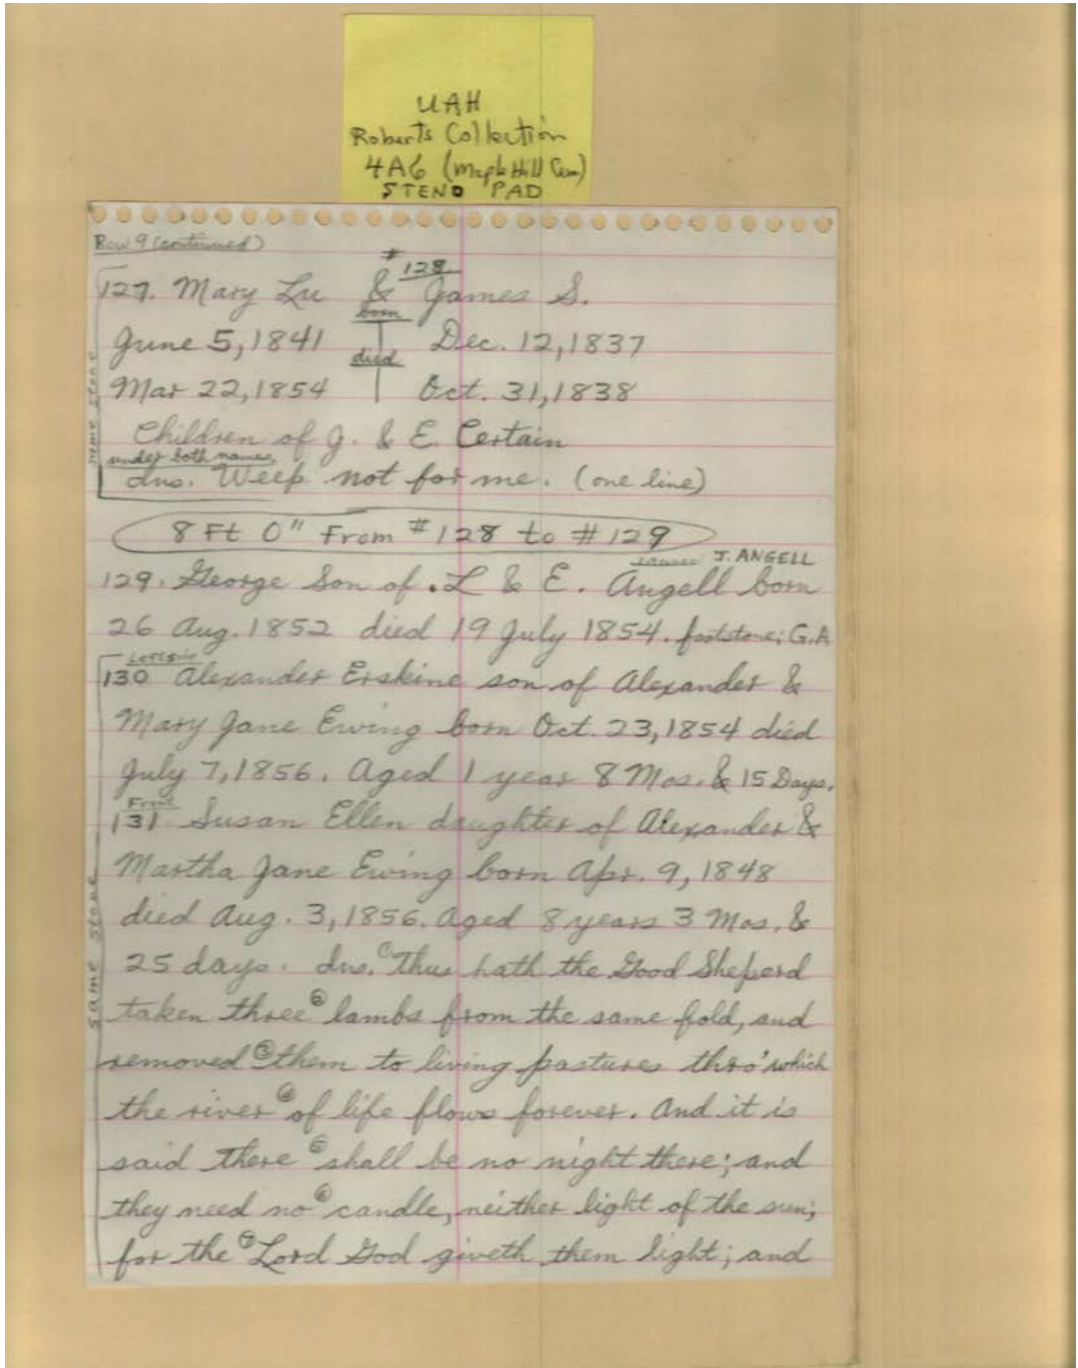 UAH
Roberts Collection
4A6 (Maple Hill Cem)
STENO PAD
Row 9 (continued)
# 128
127. Mary Lu & James S.
born
June 5, 1841 Dec. 12, 1837
died
Mar 22, 1854 Oct. 31, 1838
Children of J. & E. Certain
under both names.
Ins. Weep not for me. (one line)
same stone
8 Ft 0" From #128 to #129
J. ANGELL
129. George Son of . L & E. Angell born
26 Aug. 1852 died 19 July 1854. footstone; G.A
130 Alexander Erskine son of Alexander &
Mary Jane Ewing born Oct. 23, 1854 died
July 7, 1856. Aged 1 year 8 Mos. & 15 Days.
Front
131 Susan Ellen daughter of Alexander &
Martha Jane Ewing born Apr. 9, 1848
died Aug. 3, 1856. Aged 8 years 3 Mos. &
25 days. Ins. ① Thus hath the Good Sheperd
taken three ② lambs from the same fold, and
removed ③ them to living pastures thro' which
the river ④ of life flows forever. And it is
said There ⑤ shall be no night there; and
they need no ⑥ candle, neither light of the sun;
for the ⑦ Lord God giveth them light; and
same stone